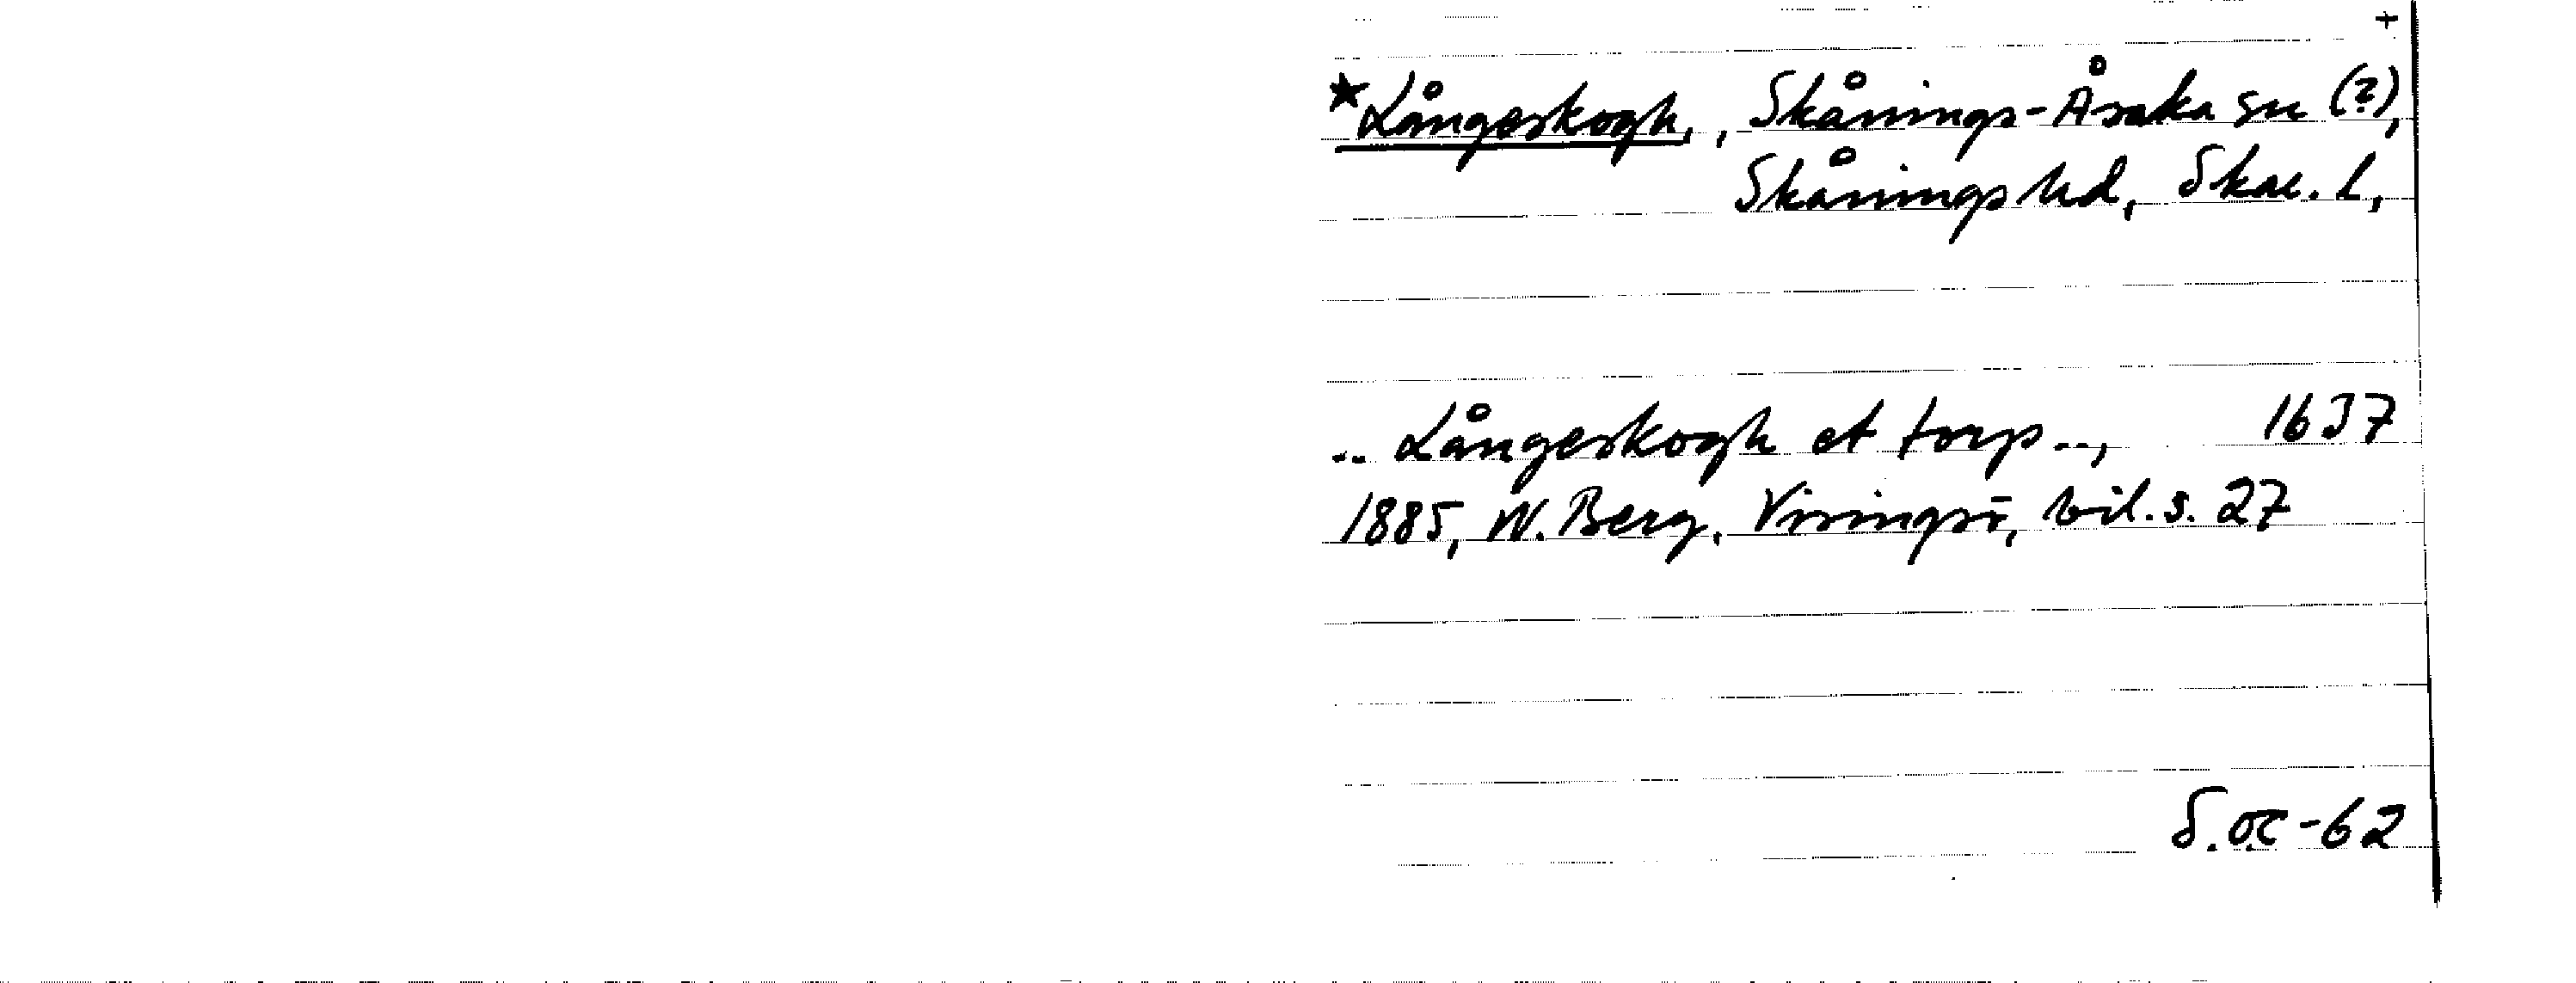 +
*Långeskogh, Skånings-Åsaka sn (?),
Skånings hd, Skar. l,
.. Långeskogh et torp .., 1637
1885, W. Berg. Visingsö, bil. s. 27
-62